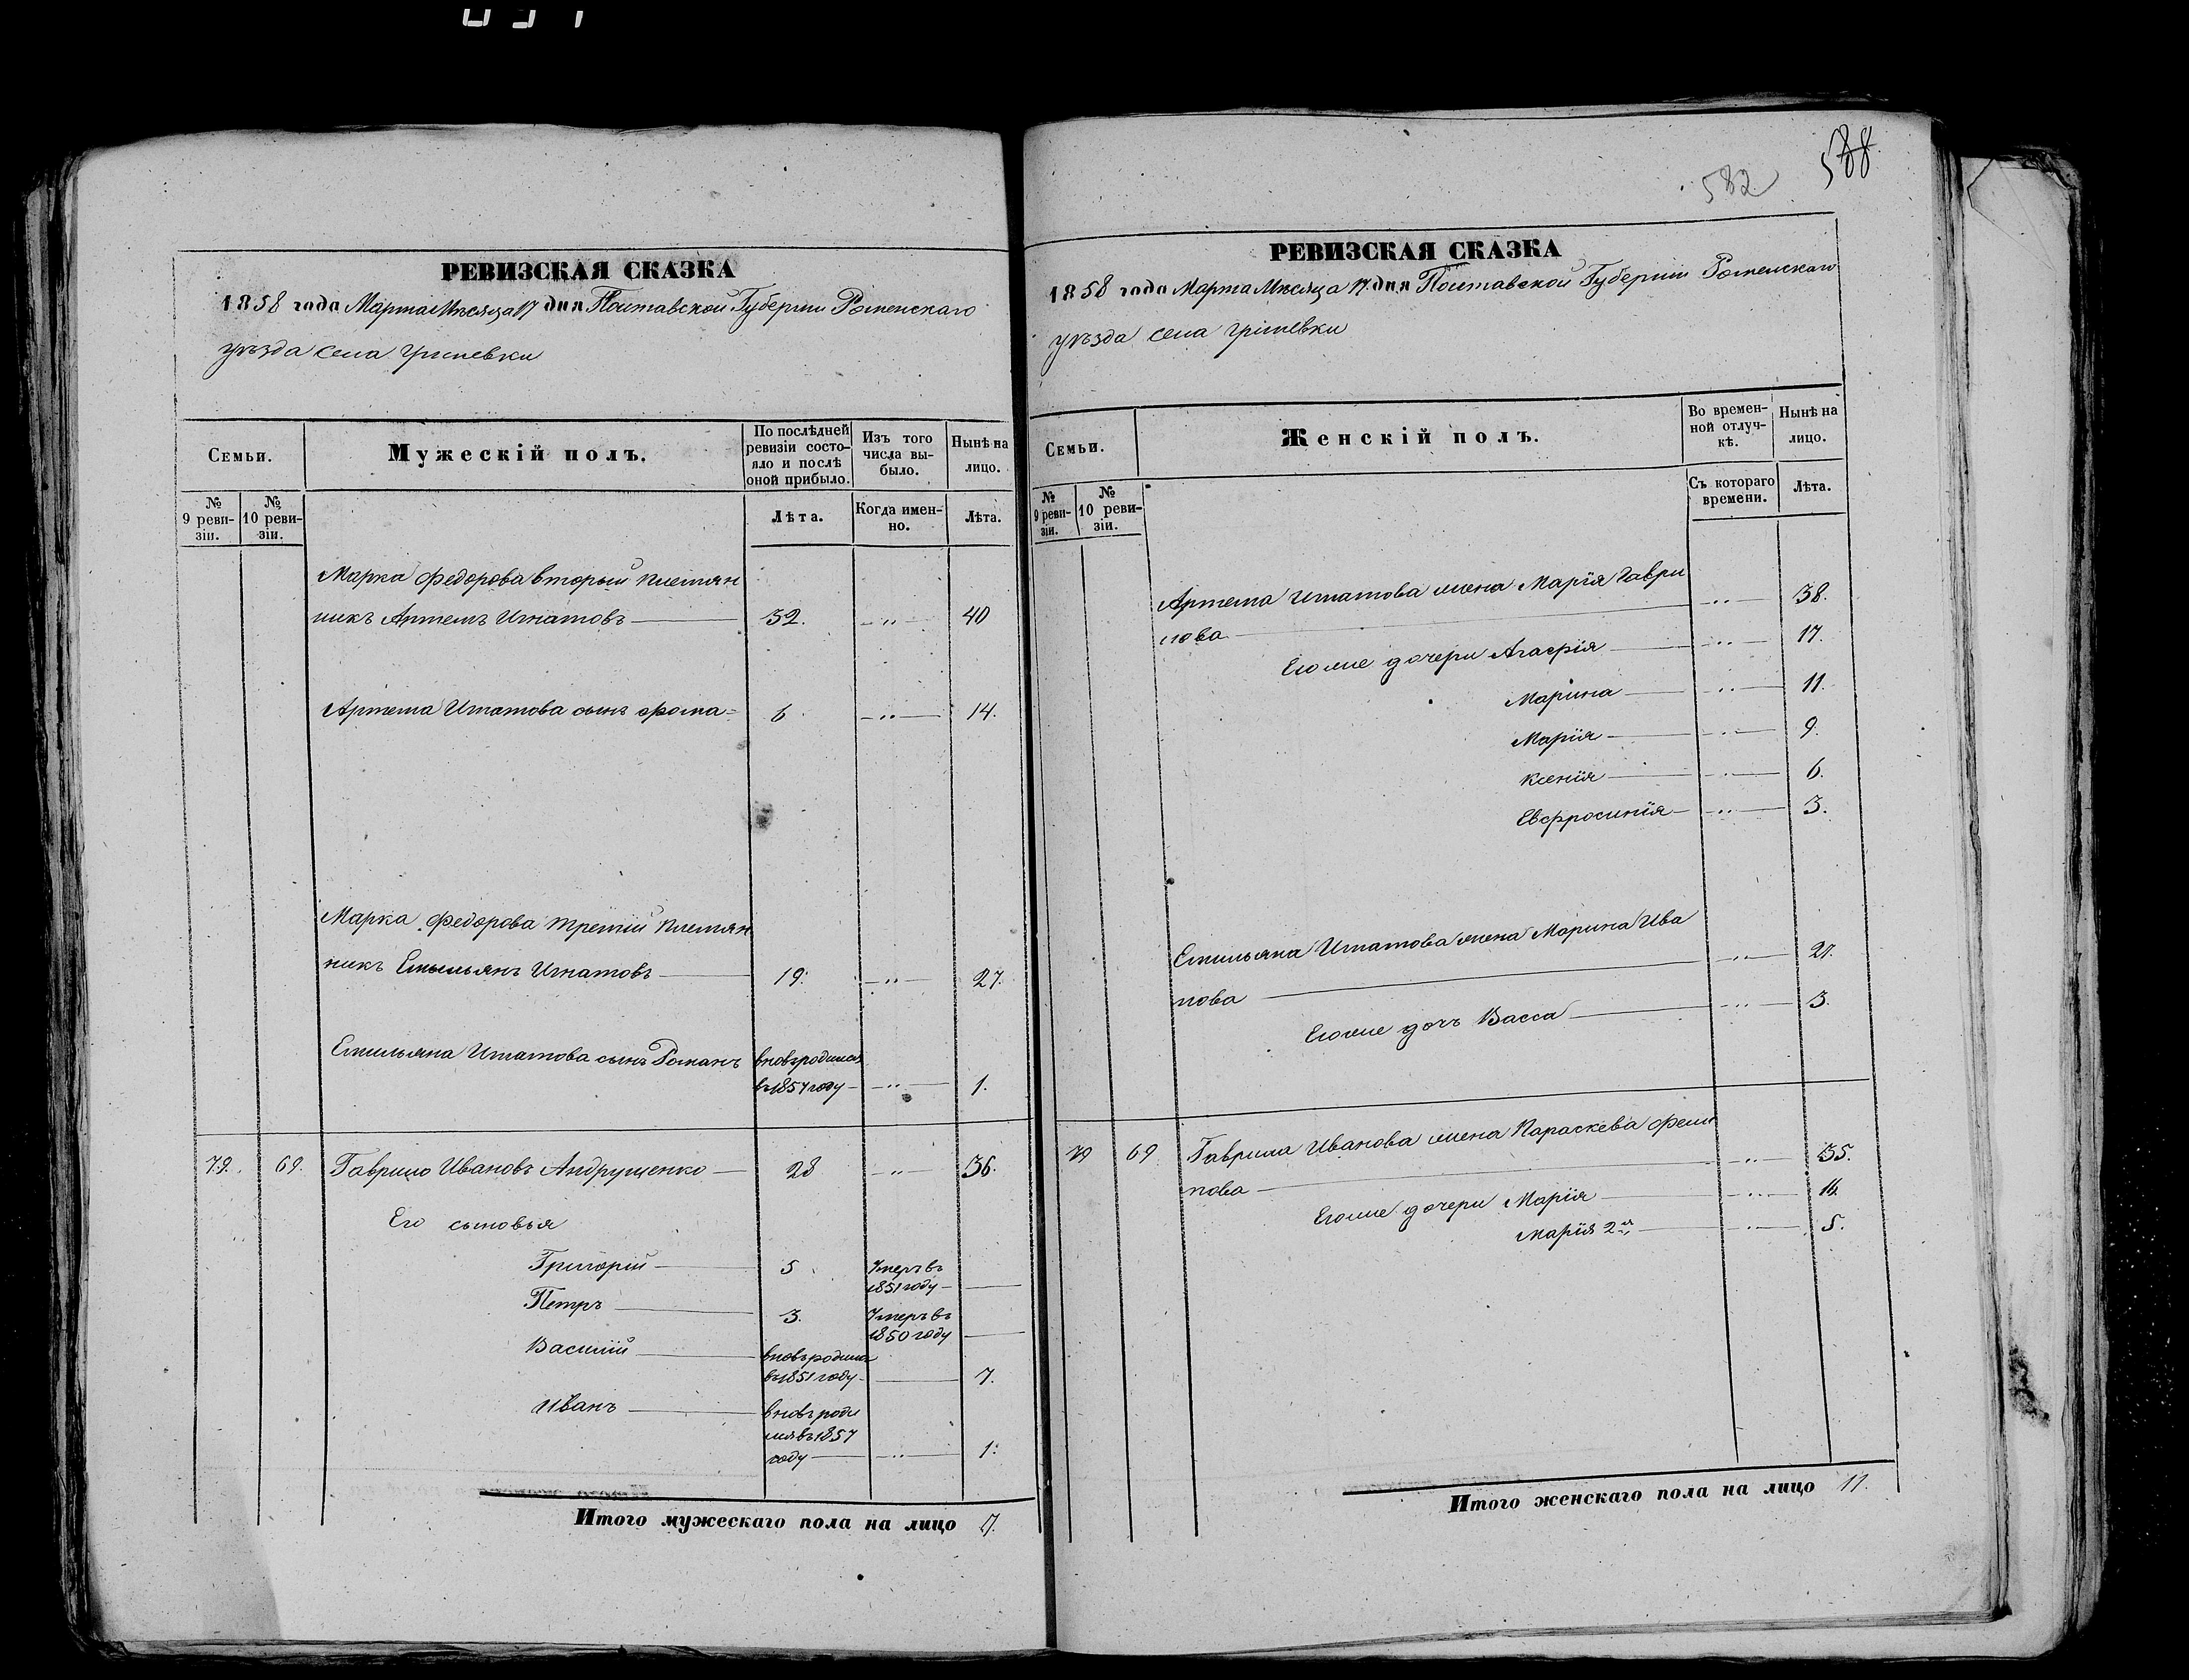 588
582
РЕВИЗСКАЯ СКАЗКА
1858 года Марта Мѣсяца 17 дня Полтавской Губерніи Роменскаго
уѣзда села Гришевки
Семьи.
Мужескій полъ.
По послѣдней ревизіи состояло и послѣ оной прибыло.
Изъ того числа выбыло.
Нынѣ на лицо.
№ 9 ревизіи.
№ 10 ревизіи.
Лѣта.
Когда именно.
Лѣта.
Марка Федорова вторый племян
никъ Артемъ Игнатовъ 32. — „ — 40
Артема Игнатова сынъ Фома 6 — „ — 14.
Марка Федорова третій племян
никъ Емельянъ Игнатовъ 19. — „ — 27.
Емильяна Игнатова сынъ Романъ вновьродился
въ 1857 году — „ — 1.
79. 69. Гаврило Ивановъ Андрущенко 28 — „ — 36.
Его сыновья
Григорій 5 Умеръ въ
1851 году —
Петръ 3. Умеръ въ
1850 году —
Василій вновьродился
въ 1851 году — 7.
Иванъ вновьроди
лся въ 1857
году — „ — 1.
Итого мужескаго пола на лицо 7.
РЕВИЗСКАЯ СКАЗКА
1858 года Марта Мѣсяца 17 дня Полтавской Губерніи Роменскаго
уѣзда села Грішевки
Семьи.
Женскій полъ.
Во временной отлучкѣ.
Нынѣ на лицо.
№ 9 ревизіи.
№ 10 ревизіи.
Съ котораго времени.
Лѣта.
Артема Игнатова жена Марія Гаври
лова — „ — 38.
Его же дочери Агафія — „ — 17.
Марина — „ — 11.
Марія — „ — 9.
Ксенія — „ — 6.
Евфросинія — „ — 3.
Емильяна Игнатова жена Марина Ива
нова — „ — 27.
Его же дочь Васса — „ — 3.
79 69 Гаврила Иванова жена Параскева Фили
пова — „ — 35.
Его же дочери Марія — „ — 16.
Марія 2я — „ — 5.
Итого женскаго пола на лицо 11.